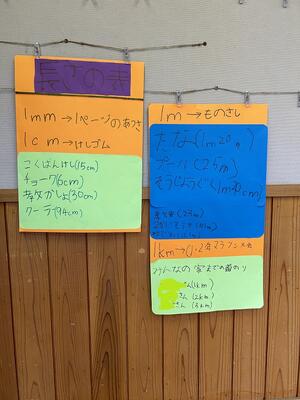 長さの表
1mm→1ページのあつさ
1cm→けしゴム
こくばんけし(15cm)
チョーク(6cm)
教かしょ(30cm)
クーラー(94cm)
1m→ものさし
たな(1m20cm)
プール(25m)
そうじようぐ(1m30cm)
1km→1、2年マラソン大会
みんなの家までの道のり
さん(1km)
さん(2km)
さん(3km)